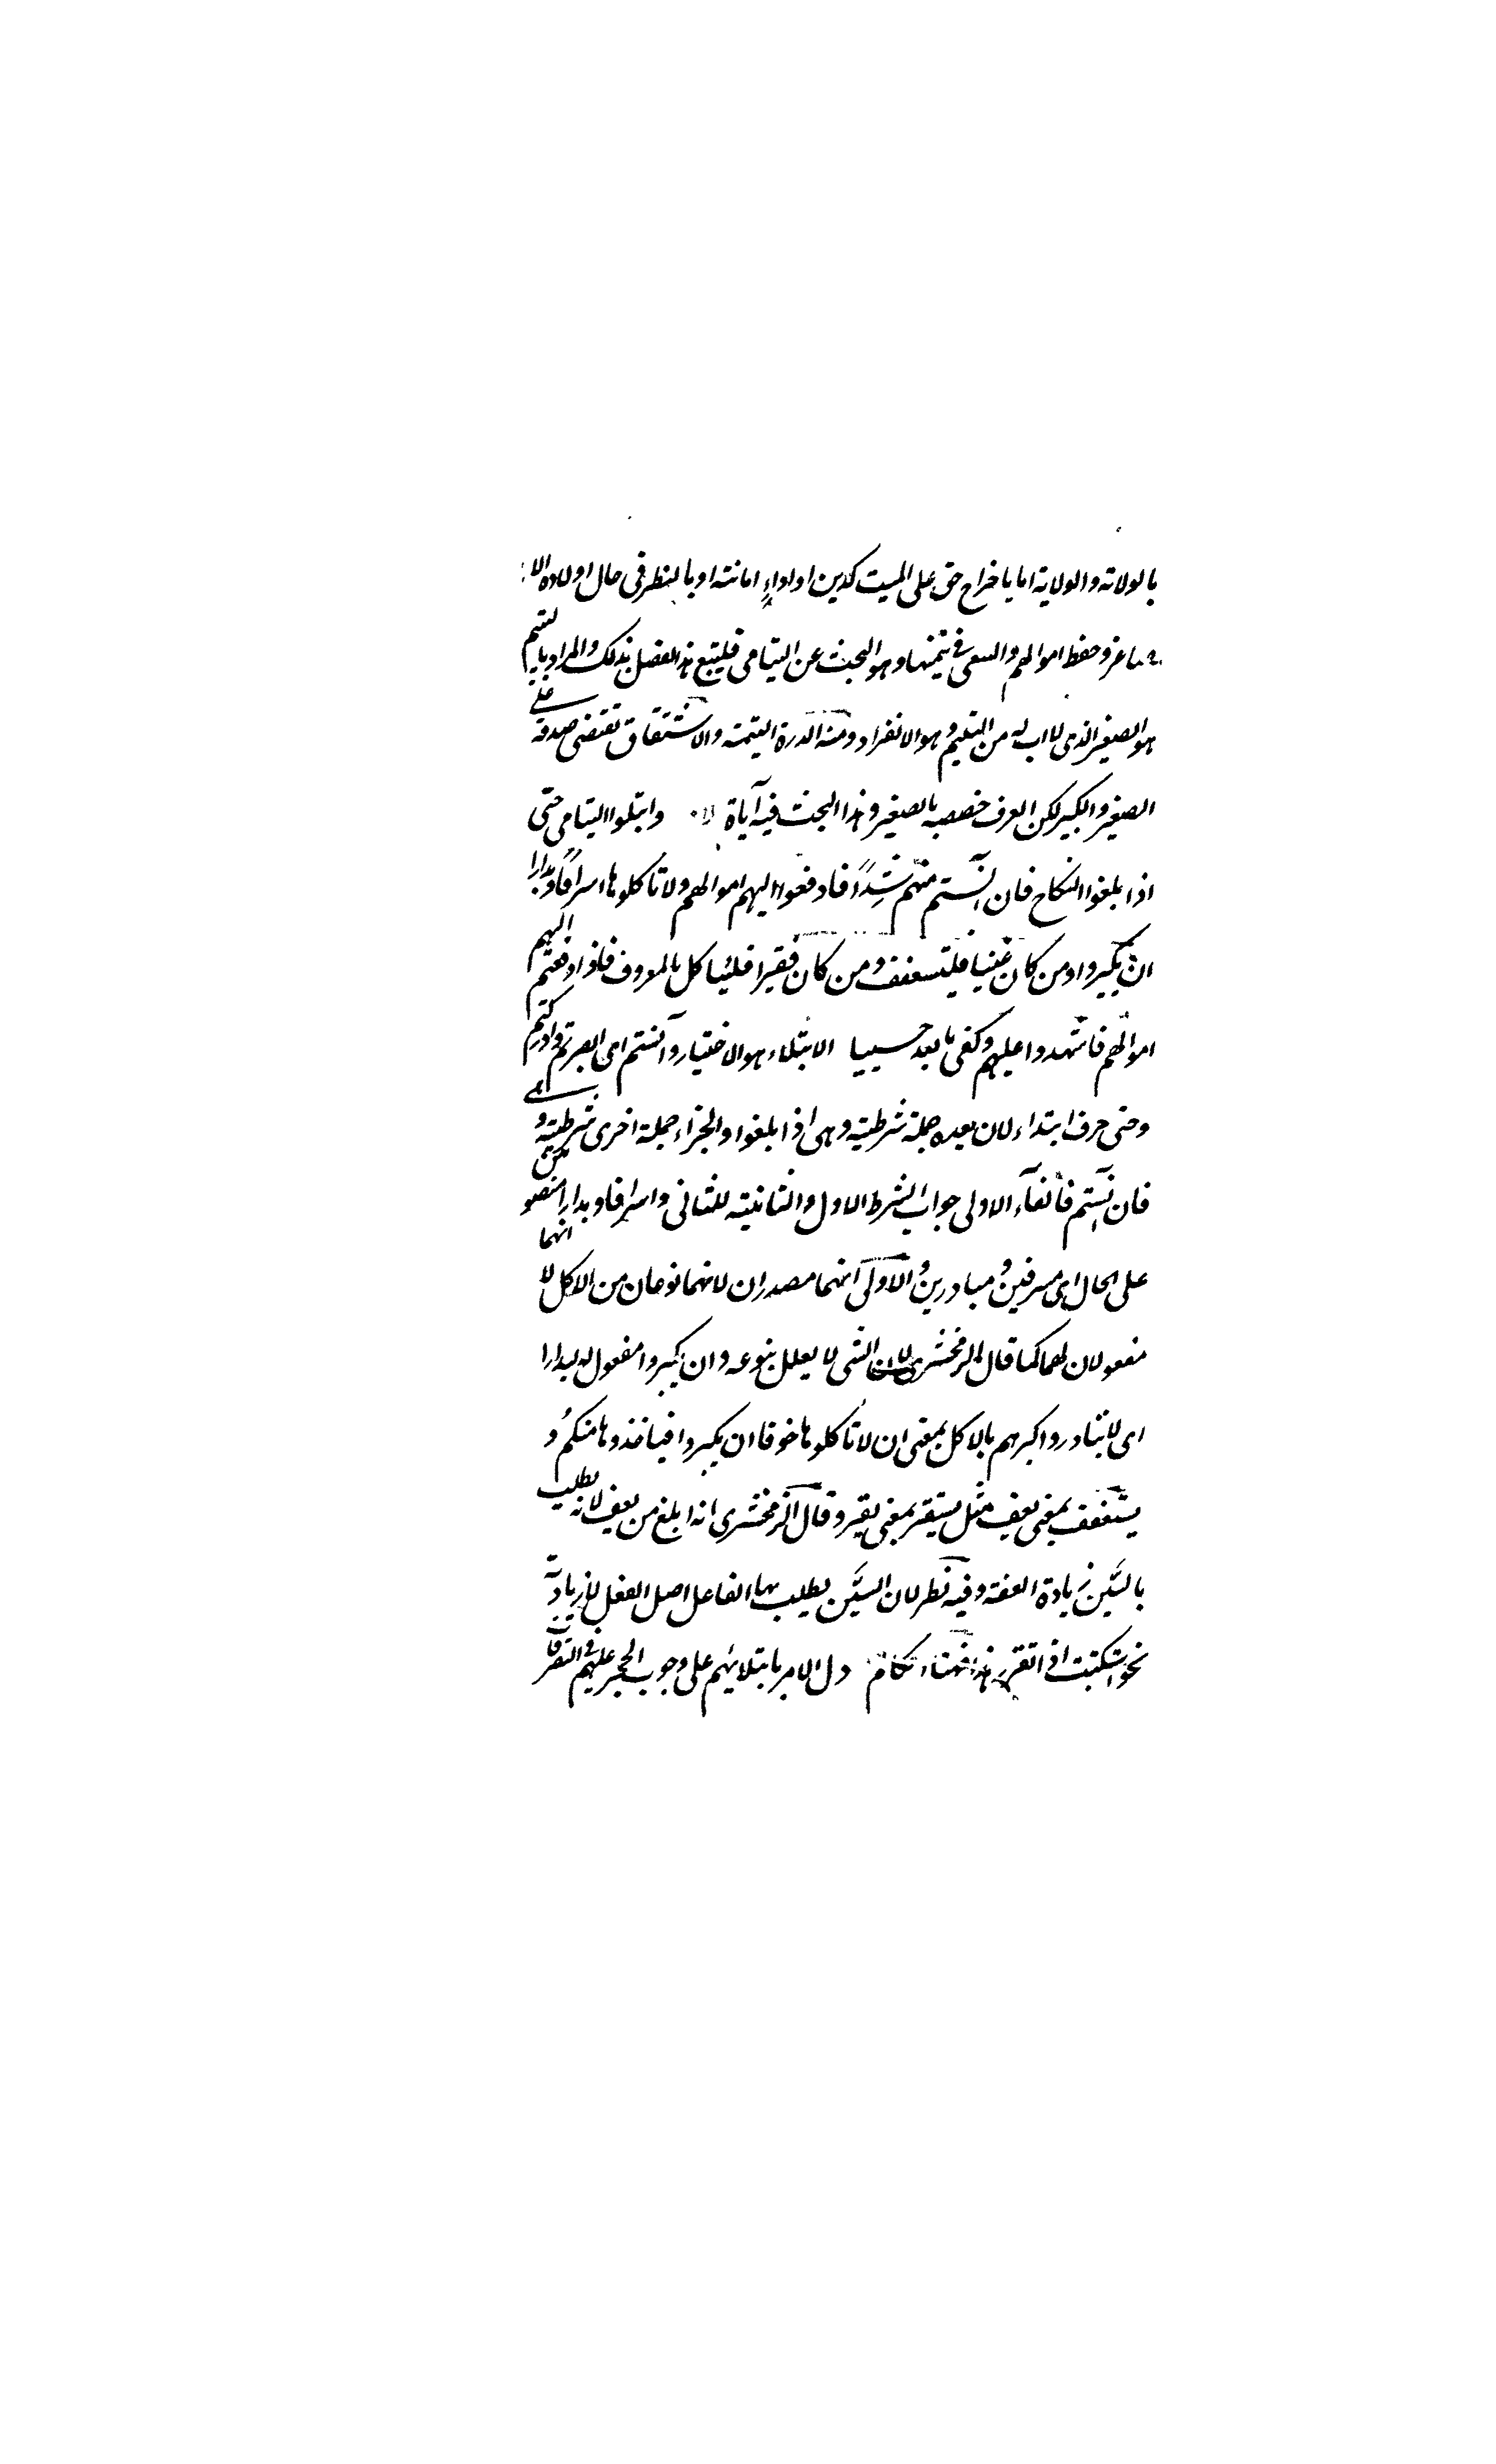 بالولاته والولاية اما باخراج حق على الميت كدين او اداء امانته او بالنظر فى حال اولاده الا
صاغر وحفظ اموالهم والسعى فى تنميتها وهو البحث عن اليتامى فليتبع هذا الفصل بذلك والمراد باليتيم
هو الصغير الذى لا اب له من اليتم وهو الانفراد ومنه الدرة اليتيمة والاشتقاق تقتضى صدقه على
الصغير والكبير لكن العرف خصصه بالصغير وهذا البحث فيه آياة وابتلوا اليتامى حتى
اذا بلغوا النكاح فان آنستم منهم رشدًا فادفعوا اليهم اموالهم ولا تأكلوها اسرافًا وبدارا
ان يكبروا ومن كان غنيا فليستعفف ومن كان فقيرا فليأكل بالمعروف فاذا دفعتم اليهم
اموالهم فاشهدوا عليهم وكفى بالله حسيبا الابتلاء هو الاختيار وآنستم اى ابصرتم وادركتم
وحتى حرف ابتداء لان بعده جملة شرطية وهى اذا بلغوا والجزاء جملة اخرى شرطية وهى
فان آنستم فالفآء الاولى جواب الشرط الاول والثانية للثانى واسرافا وبدارا منصوبين
على الحال اى مسرفين ومبادرين والاولى انهما مصدران لانهما نوعان من الاكل لا انهما
مفعولان لهما كما قال الزمخشرى لان الشى لا يعلل بنوعه وان يكبروا مفعول لبدارا
اى لا تبادروا كبرهم بالاكل بمعنى ان لا تأكلوها خوفا ان يكبروا فياخذوها منكم و
يستعفف بمعنى يعف مثل يستقر بمعنى يقر وقال الزمخشرى انه ابلغ من يعف لانه يطلب
بالسّين زيادة العفة وفيه نظر لان السّين يطلب بها الفاعل اصل الفعل لا زيادته
نحو استكتبت اذا تقرر هذا فهنا احكام دل الامر بابتلائهم على وجوب الحجر عليهم فى التصرفات